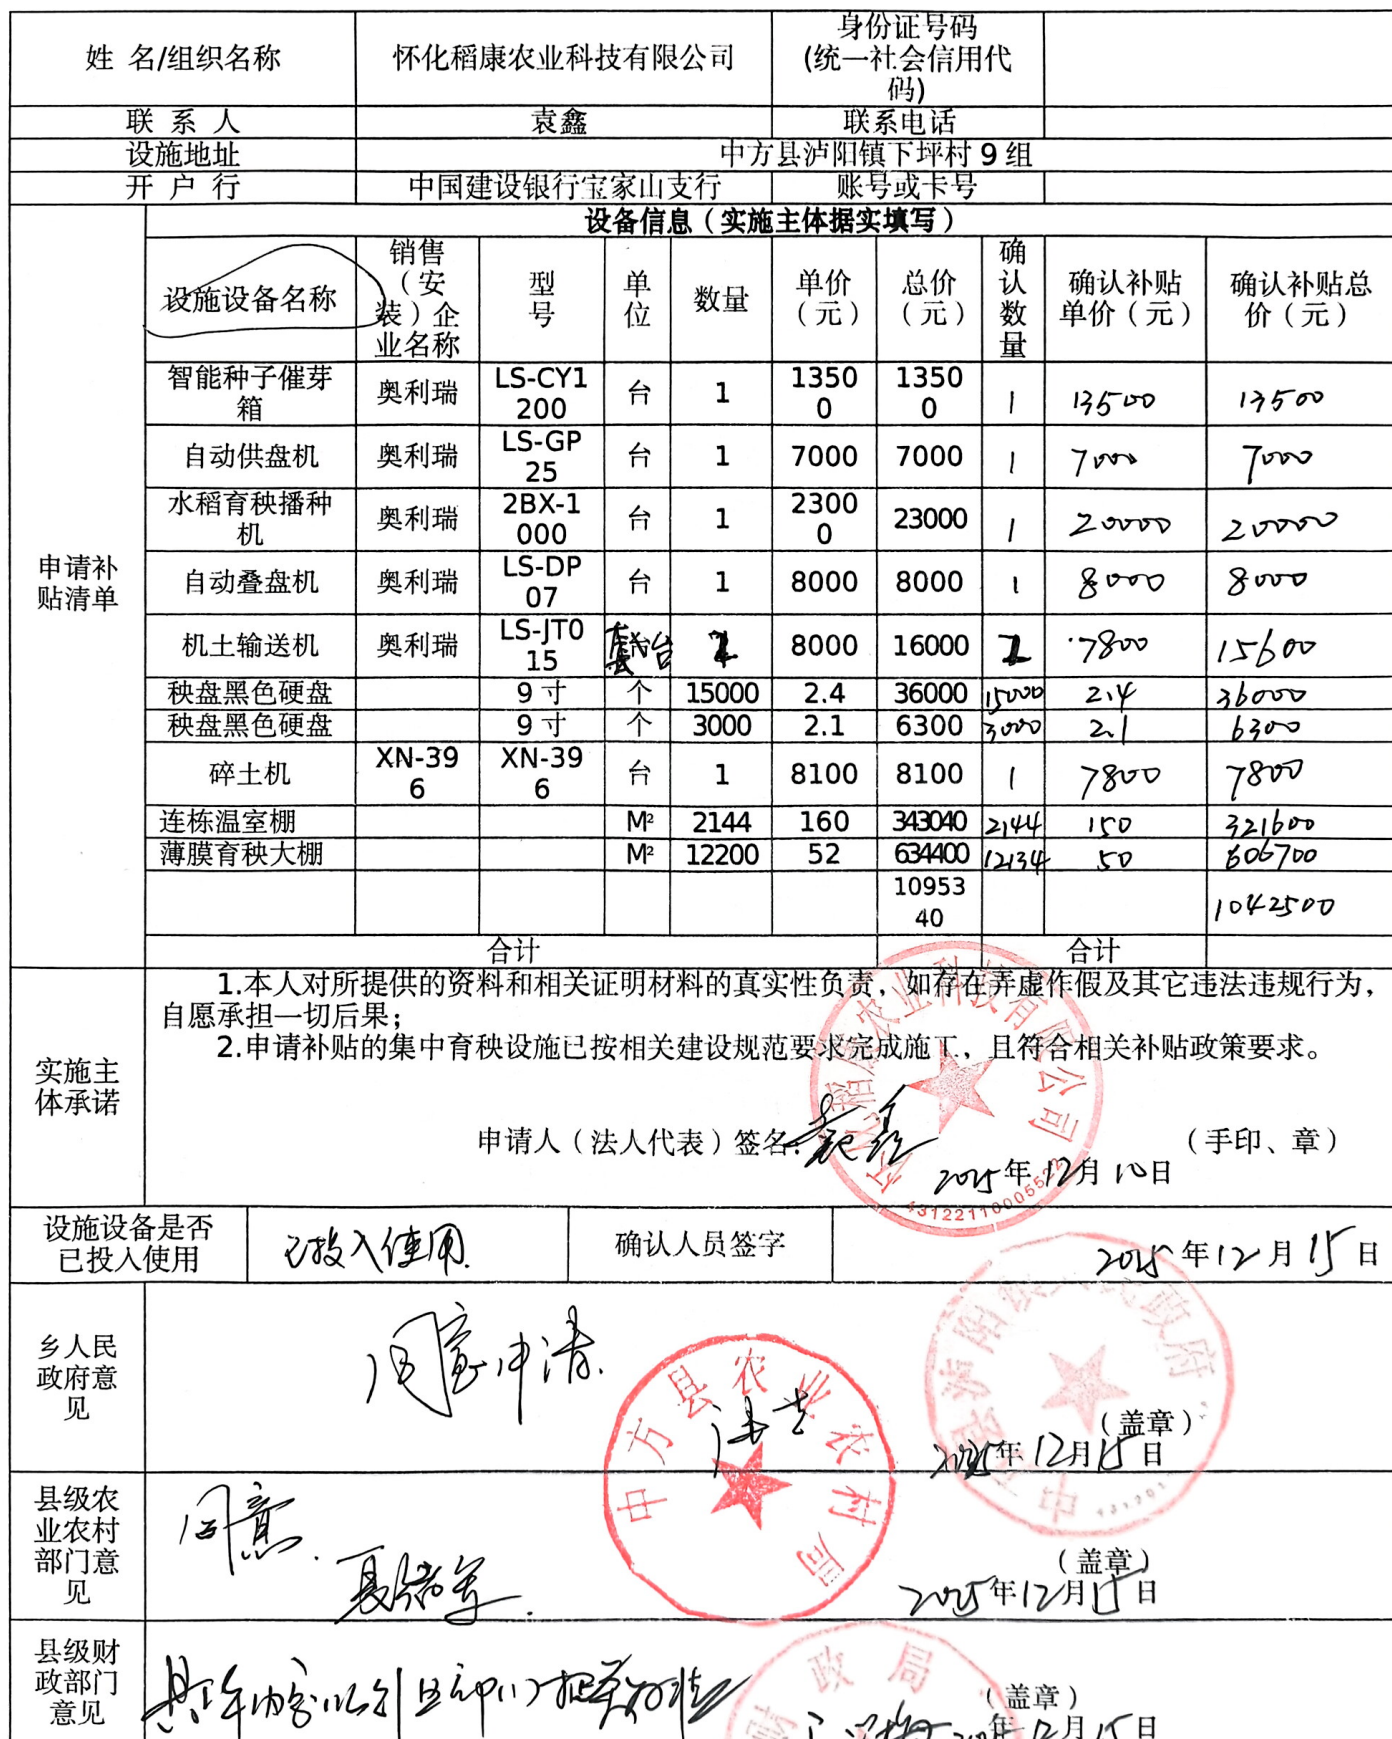 姓 名/组织名称 怀化稻康农业科技有限公司 身份证号码(统一社会信用代码)
联 系 人 袁鑫 联系电话
设施地址 中方县泸阳镇下坪村 9 组
开 户 行 中国建设银行宝家山支行 账号或卡号
申请补贴清单
设备信息（实施主体据实填写）
设施设备名称 销售（安装）企业名称 型号 单位 数量 单价（元） 总价（元） 确认数量 确认补贴单价（元） 确认补贴总价（元）
智能种子催芽箱 奥利瑞 LS-CY1200 台 1 13500 13500 1 13500 13500
自动供盘机 奥利瑞 LS-GP25 台 1 7000 7000 1 7000 7000
水稻育秧播种机 奥利瑞 2BX-1000 台 1 23000 23000 1 20000 20000
自动叠盘机 奥利瑞 LS-DP07 台 1 8000 8000 1 8000 8000
机土输送机 奥利瑞 LS-JT015 台 8000 16000 7800 15600
秧盘黑色硬盘 9 寸 个 15000 2.4 36000 15000 2.4 36000
秧盘黑色硬盘 9 寸 个 3000 2.1 6300 3000 2.1 6300
碎土机 XN-396 XN-396 台 1 8100 8100 1 7800 7800
连栋温室棚 M² 2144 160 343040 2144 150 321600
薄膜育秧大棚 M² 12200 52 634400 12134 50 606700
1095340 1042500
合计 合计
实施主体承诺
1.本人对所提供的资料和相关证明材料的真实性负责，如存在弄虚作假及其它违法违规行为，
自愿承担一切后果；
2.申请补贴的集中育秧设施已按相关建设规范要求完成施工，且符合相关补贴政策要求。
申请人（法人代表）签名: 袁鑫 （手印、章）
2025年12月10日
稻康农业科技有限公司
设施设备是否已投入使用 已投入使用. 确认人员签字 2025年12月15日
乡人民政府意见 同意申请.
（盖章）
2025年12月15日
中方县农业农村局
县级农业农村部门意见 同意.
（盖章）
2025年12月15日
县级财政部门意见
财政局
（盖章）
年12月15日